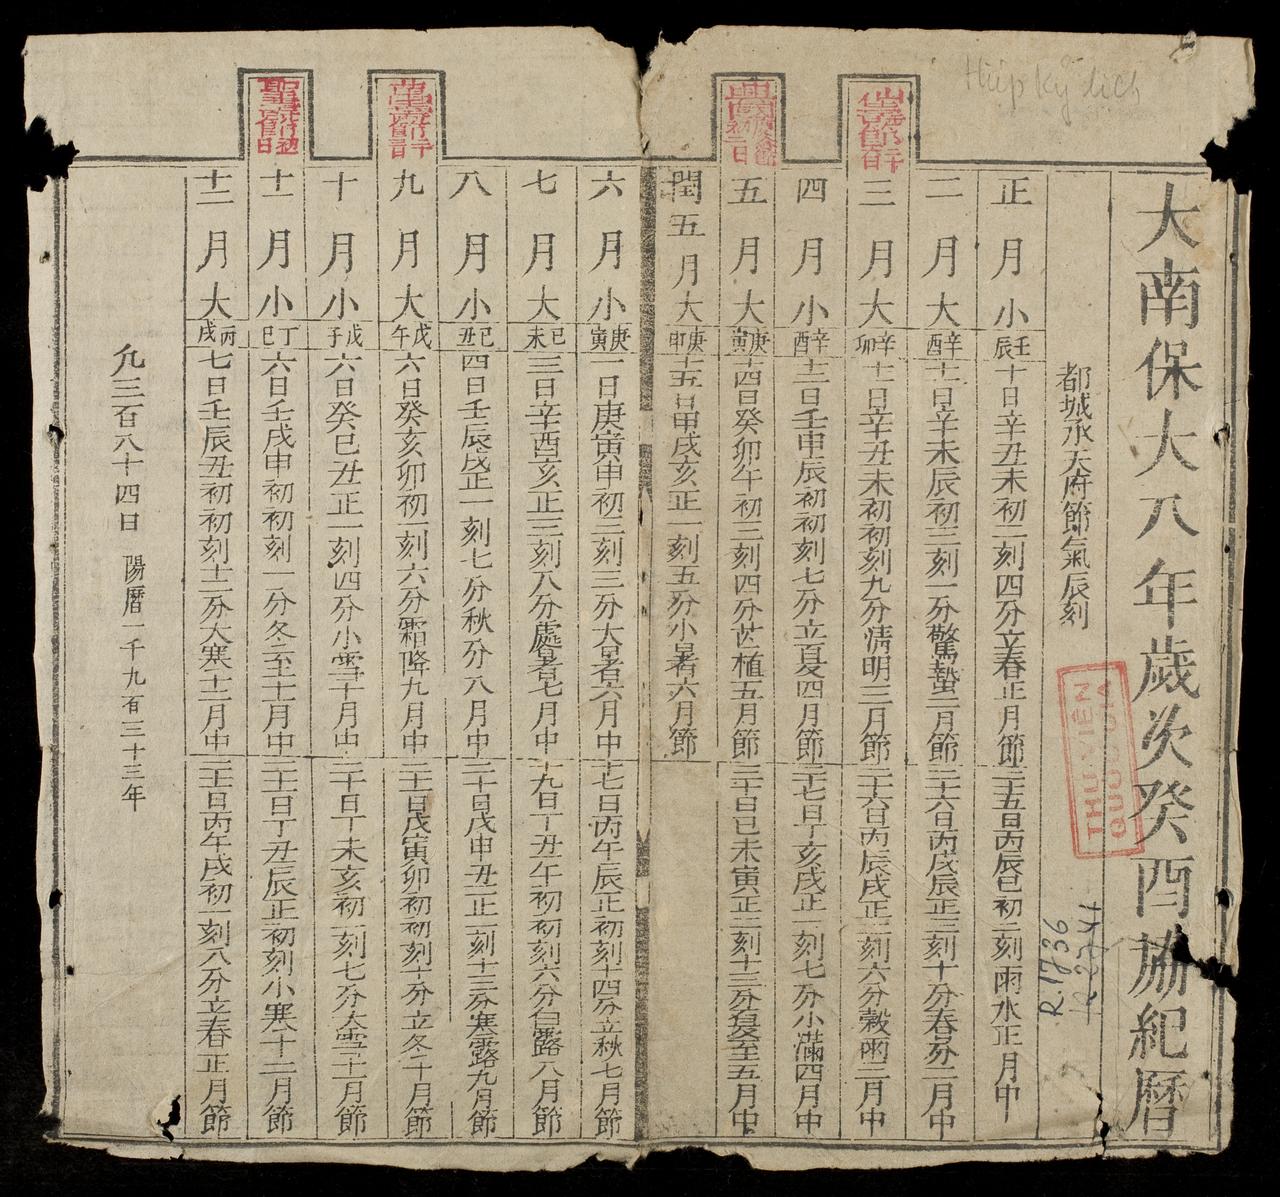 Hiệp kỷ lịch
大南保大八年歲次癸酉協紀曆
都城承天府節氣辰刻
THƯ VIỆN
QUỐC GIA
R.1736
正月小 壬辰 十日辛丑未初二刻四分立春正月節 二十五日丙辰巳初三刻雨水正月中
二月大 辛酉 十一日辛未辰初三刻一分驚蟄二月節 二十六日丙戌辰正三刻十分春分二月中
仙壽節二十一日
三月大 辛卯 十一日辛丑未初初刻九分清明三月節 二十六日丙辰戌正二刻六分穀雨三月中
四月小 辛酉 十二日壬申辰初初刻七分立夏四月節 二十七日丁亥戌正一刻七分小滿四月中
興國慶念節初二日
五月大 庚寅 十四日癸卯午初三刻四分芒植五月節 三十日己未寅正三刻十三分夏至五月中
閏五月大 庚申 十五日甲戌亥正一刻五分小暑六月節
六月小 庚寅 一日庚寅申初三刻三分大暑六月中 十七日丙午辰正初刻十四分立秋七月節
七月大 己未 三日辛酉亥正三刻八分處暑七月中 十九日丁丑午初初刻六分白露八月節
八月小 己丑 四日壬辰戌正一刻七分秋分八月中 二十日戊申丑正二刻十三分寒露九月節
萬壽節二十三日
九月大 戊午 六日癸亥卯初一刻六分霜降九月中 二十一日戊寅卯初初刻十分立冬十月節
十月小 戊子 六日癸巳丑正一刻四分小雪十月中 二十日丁未亥初一刻七分大雪十一月節
聖壽節初十日
十一月小 丁巳 六日壬戌申初初刻一分冬至十一月中 二十一日丁丑辰正初刻小寒十二月節
十二月大 丙戌 七日壬辰丑初初刻十二分大寒十二月中 二十一日丙午戌初一刻八分立春正月節
凡三百八十四日 陽曆一千九百三十三年